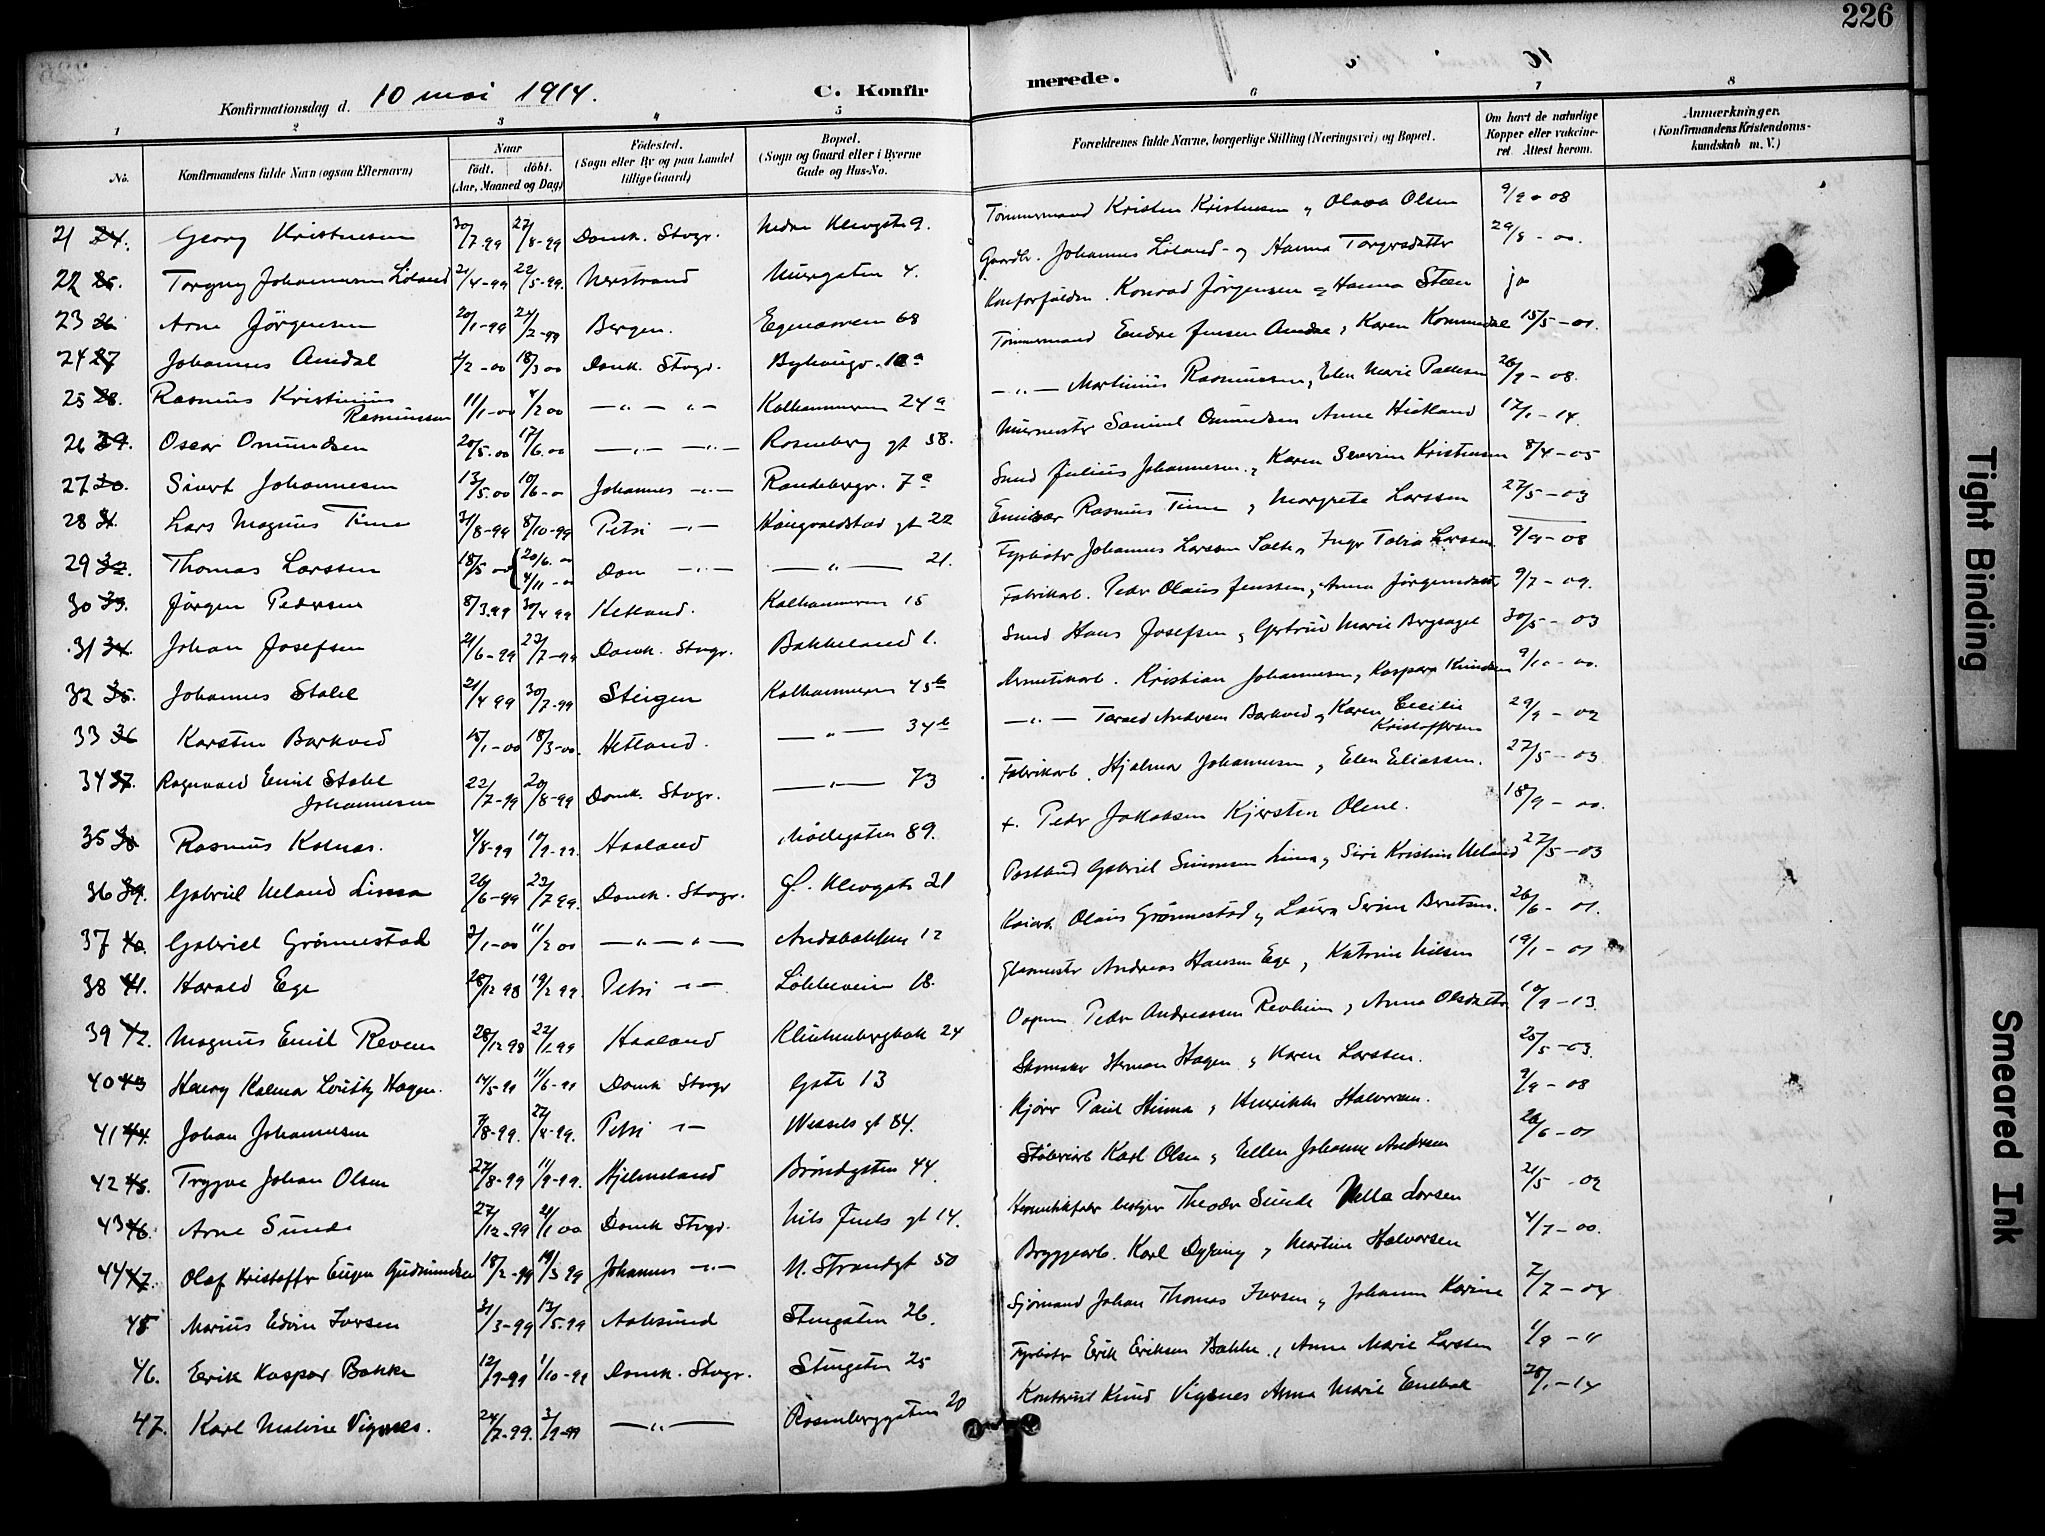 226
Konfirmationsdag d. 10 mai 1914. C. Konfirmerede.
1 2 3 4 5 6 7 8
No. Konfirmandens fulde Navn (ogsaa Efternavn) Naar födt. döbt. (Aar, Maaned og Dag) Födested. (Sogn eller By og paa Landet tillige Gaard) Bopæl. (Sogn og Gaard eller i Byerne Gade og Hus-No. Forældrenes fulde Navne, borgerlige Stilling (Næringsvei) og Bopæl. Om havt de naturlige Kopper eller vakcineret. Attest herom. Anmærkninger. (Konfirmandens Kristendomskundskab m. V.)
21 24. Georg Kristensen 30/7-99 27/8-99 Domk. Stvgr. Nedre Klevgt 9. Tömmermand Kristen Kristensen, Olava Olsen 9/9-08
22 25. Torgny Johannesen Löland 21/4-99 22/5-99. Nerstrand Muergaten 4. Gaardbr. Johannes Löland og Hanna Torgersdatter 29/8-00.
23 26 Arne Jörgensen 20/1-99 24/2-99 Bergen. Egenæsvn 68 Konrad Jörgensen, Hanna Steen ja
24 27 Johannes Amdal 2/2-00 18/3 00 Domk. Stvgr. Byhaugv. 10a Tömmermand Endre Jensen Amdal, Karen Kommedal 15/5-01.
25 28. Rasmus Kristinius Rasmussen 11/1-00 4/2 00 —„— „— Kalhammeren 24a —„— Martinius Rasmussen, Elen Marie 26/9-08.
26 29. Oscar Omundsen 20/5.00 17/6.00 —„— —„— Rosenberg gt 38. Murmester Samuel Omundsen Anne 17/1-14.
27 30. Sivert Johannesen 13/5.00 10/6-0 Johannes —„— Randebergv. 7a Smed Julius Johannesen, Karen Severine Kristensen 8/4-05
28 31. Lars Magnus Time 31/8-99 8/10-99 Petri —„— Haugvaldstad gt 22 Emissær Rasmus Time, Margrete Larssen 27/5-03
29 32. Thomas Larssen 18/5 00 20/6.00 4/11-00 Dom —„— —„— 21. Fyrböter Johannes Larssen, Inger Tobia Larssen 9/9-08
30 33. Jörgen Pedersen 8/3.99 30/4 99 Hetland. Kalhammeren 15 Fabrikarb. Peder Olaus Jenssen, Anna Jörgensdatt 9/7-09.
31 34. Johan Josefsen 21/6-99 23/7-99 Domk. Stvgr. Bakkeland 1. Smed Hans Josefsen, Gertrud Marie Bergsagel 30/5-03
32 35. Johannes Stabel 21/4 99 30/7-99 Steigen Kalhammeren 45b Hermetikarb. Kristian Johannesen, Kaspara Knudsen 9/10-00.
33 36 Karsten Barkved 15/1-00 18/3-00. Hetland. —„— 34b —„— Torvald Andersen Barkved, Karen Cecilie Kristoffersen 29/9-02
34 37. Ragnvald Emil Stabel Johannesen 22/7-99 20/8-99 Domk. Stvgr. —„— 73 Fabrikarb. Hjalmar Johannesen, Elen Eliassen. 27/5-03
35 38 Rasmus Kolnes. 4/8-99 10/9-99. Haaland Mölegaten 89. +. Peder Jakobsen Kjersten Olene. 18/9-00.
36 39. Gabriel Ueland Lima 26/6-99 23/7 99. Domk. Stvgr. Gl. Klevgate 21 Postbud Gabriel Simonsen Lima, Siri Kristine Ueland 27/5-03
37 40. Gabriel Grönnestad 3/1-00 11/2 00 —„—„— Andabakken 12 Kaiarb. Olaus Grönnestad, Laura Serine Berntsen. 26/6-01.
38 41. Harald Ege 28/12 98 19/2 99. Petri —„— Lökkeveien 18. Glasmester Andreas Hansen Ege, Katrine Nilsen 19/1-01
39 42. Magnus Emil Reven 28/12 98 22/1.99 Haaland Klinkenbergbak 24 Peder Andreassen Revheim, Anna Olsdatter 10/9-13
40 43 Henry Kalmar Louitz Hagen. 14/5-99 11/6-99 Domk Stvgr Gate 13 Skomaker Herman Hagen, Karen Larssen. 25/5-03.
41 44. Johan Johannesen 7/8-99. 27/8-99. Petri —„— Wessels gt 84. Kjörer Paul Hinna, Henrikke Halvorsen. 9/9-08
42 45. Trygve Johan Olsen 27/8-99 11/9-99. Hjelmeland Bröndgaten 44. Stöberiarb Karl Olsen, Ellen Johanne Andersen 26/6-01
43 46. Arne Sunde 27/12-99 21/1 00 Domk Stvgr. Nils Juels gt 14. Hermetikfabr bestyrer Theodor Sunde Larsen 21/5-02
44 47. Olaf Kristoffer Eugen Gudmundsen 18/2-99 19/3 99 Johannes —„— N. Strandgt 50 Bryggearb. Karl, Martine Halvorsen 4/7-00.
45 Marius Edvin Iversen 31/3-99 13/5-99 Aalesund Stengaten 26. Sjömand Johan Thomas Iversen, Johanne Karine 7/7-04
46. Erik Kaspar Bakke 12/9-99 1/10-99 Domk. Stvgr. Stengaten 25 Fyrböter Erik Eriksen Bakke, Anne Marie Larssen 1/9-„
47. Karl Malvin Vignes. 24/7-99. 3/9-99 —„— Rosenberggaten 20 Knud Vignes Anna Marie Enebak 28/1-14
Tight Binding
Smeared Ink